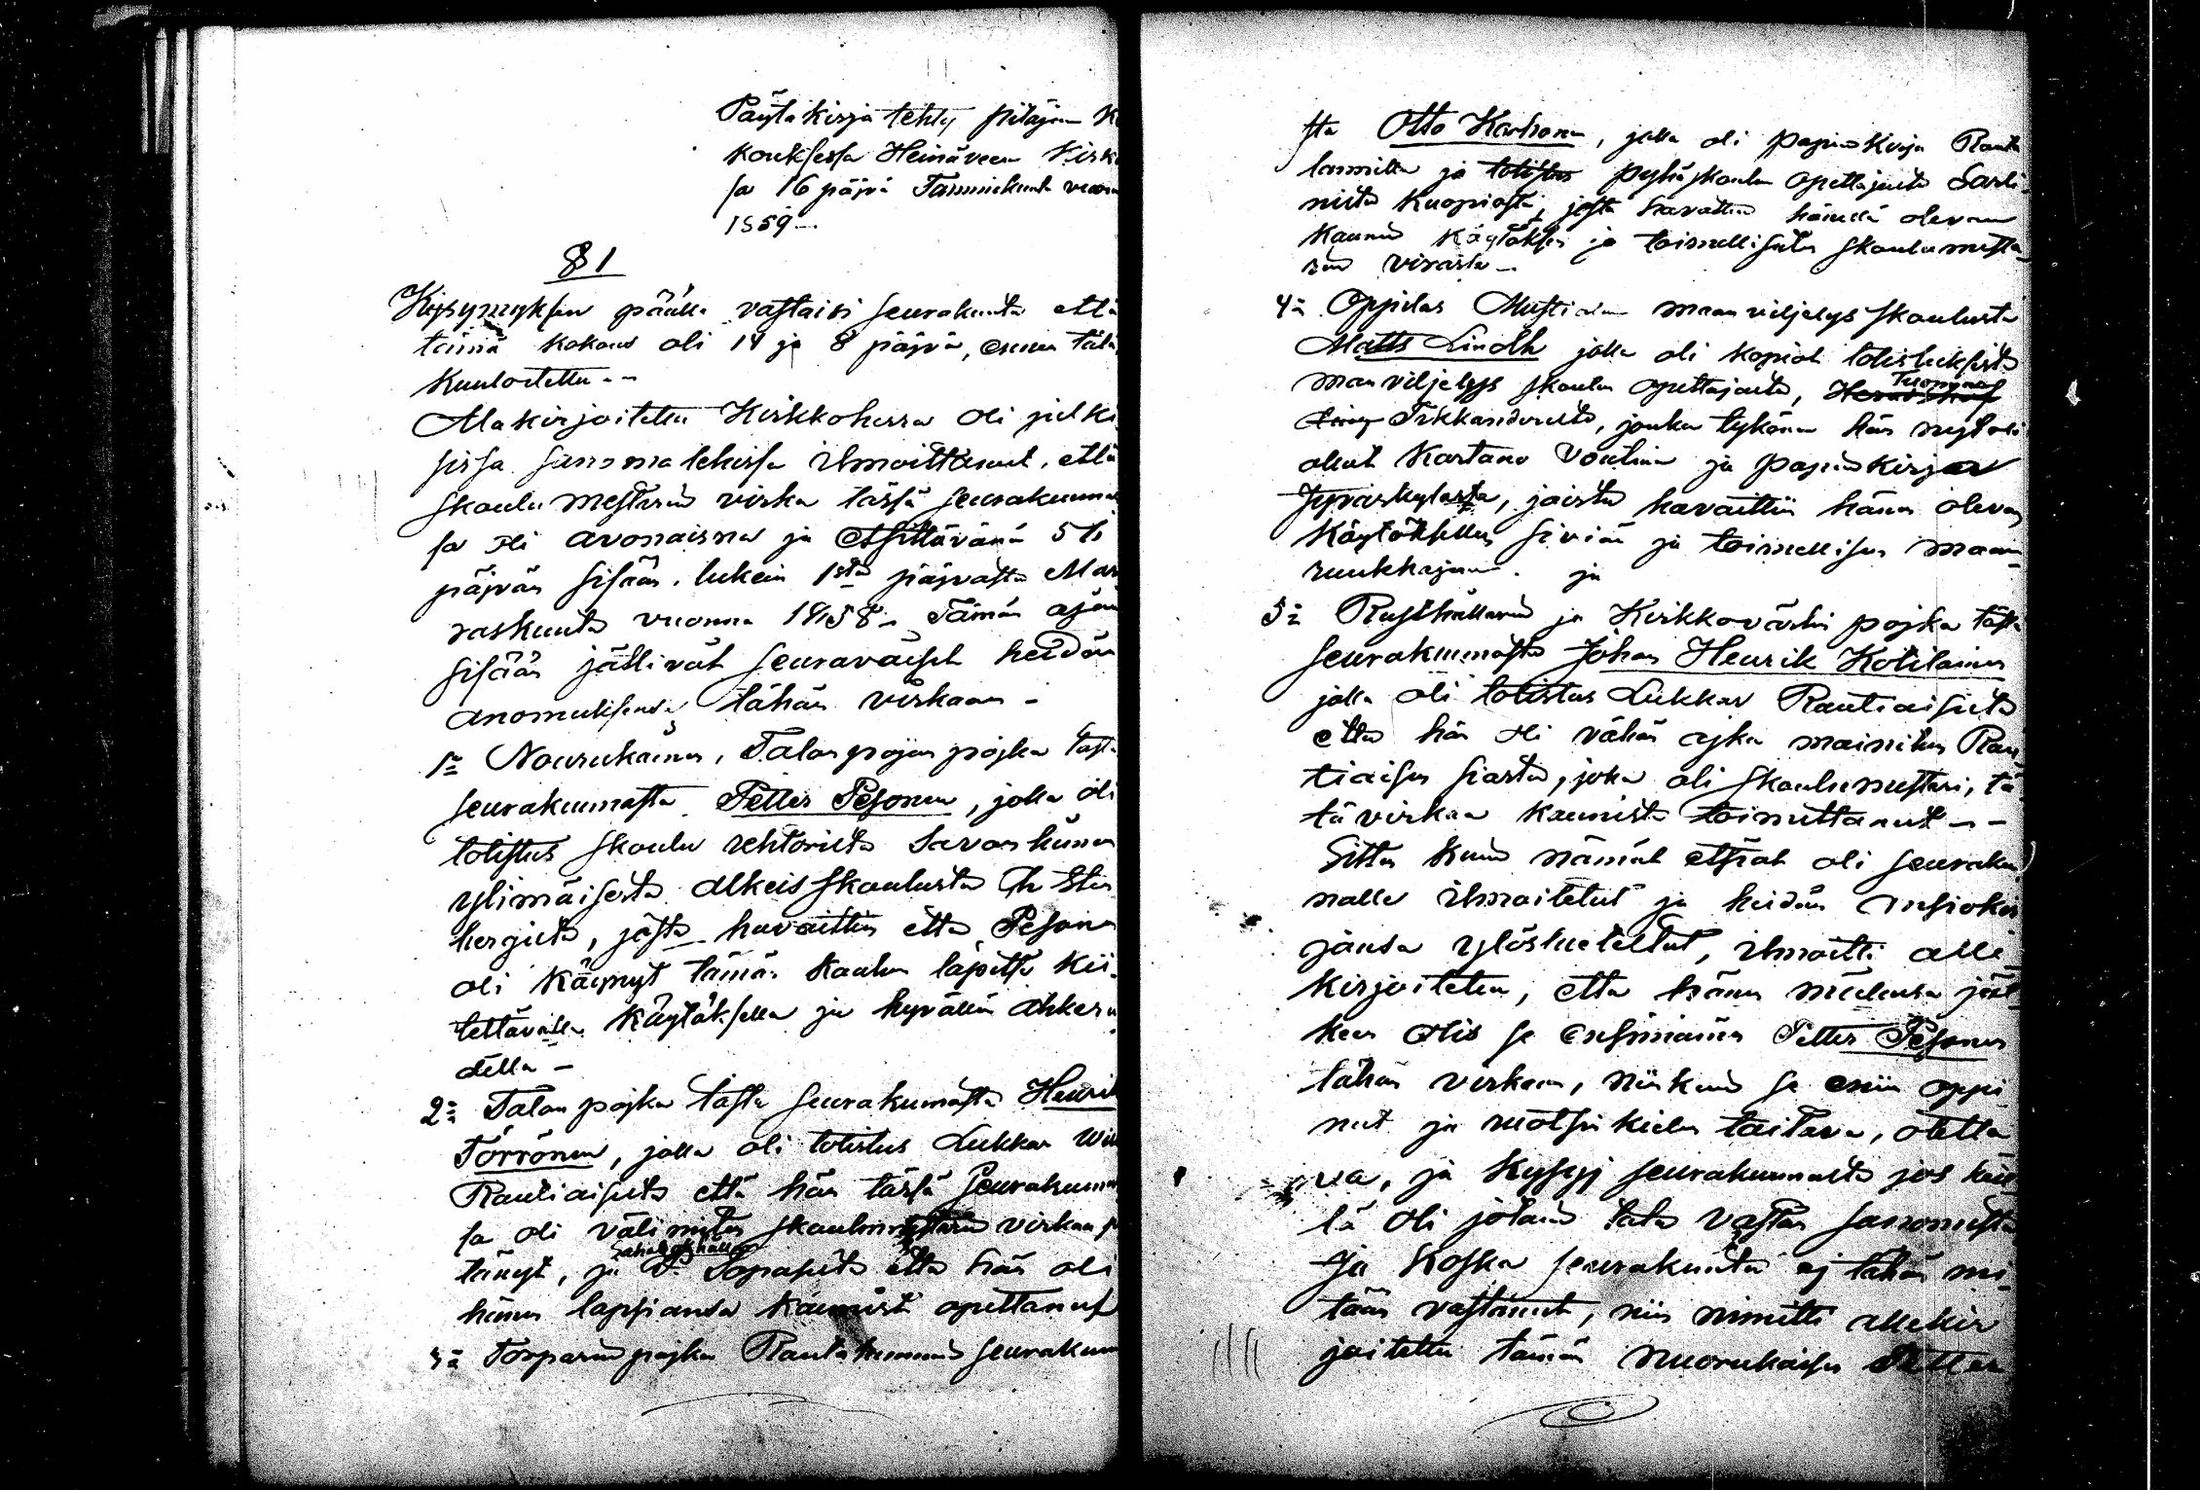 Päytäkirja tehty pitäjän K
kouksessa Heinäveen Kirk
sa 16 päjvä Tammikuuta vuonna
1859 –
§ 1
Kysymyksen päälle vastaisi seurakunta että
tämä kokous oli 14 ja 8 päjvä, ennen tätä
kuuloitettu - -
Allakirjoitettu Kirkkoherra oli julki
sissa sanomalehissa ilmoittanut, että
skoulumestarin virka tässä seurakunna
sa oli avonaisna ja etsittävänä 56
päjvän sisään, lukein 1stä päjvästä Mar
raskuuta vuonna 1858 – Tämän ajan
sisään jättivät seuravaiset heidän
anomuksensa tähän virkaan –
1:ä Nourukainen, Talonpojan pojka tästä
seurakunnasta Petter Pesonen, jolla oli
totistus skoulu rehtorilta Savonlinnan
ylimäisestä alkeis skoulusta Th Sten
bergiltä, josta havaittiin etta Pesonen
oli käynyt tämän koulun läpitse kii-
tettävällä käytöksellä ja hyvällä ahkeru
della –
2:ä Talon pojka tästä seurakunnasta Henrik
Törrönen, jolla oli totistus Lukkar
Rautiaiselta että hän tässä seurakunna
sa oli väli skoulumestarin virkaa
tänyt, ja Sopaselta että hän oli
hänen lapsiansa kauniisti opettanut
3:ä Torparin pojka Rautalammin seurakunn
sta Otto Karhonen, jolla oli papinkirja Rauta
lammilta ja totistus pyhäskoulun opettajalta Sarli-
nilta Kuopiosta, josta havattiin hänellä olevan
kaunis käytöksen ja toimellisuten skoulumesta-
rin virasta –
4:ä Oppilas Mustialan maanviljelys skoulusta
Matts Lindh jolla oli kopiat totistuksista
maanviljelys skoulun opettajalta,
Tikkanderilta, jonka tykönä hän nyt oli
ollut Kartano Voutina ja papinkirjan
Jyväskylästä, joista havaittiin hänen olevan
käytökseltä siviän ja toimellisen maan-
ruukkajan. ja
5:ä Rusthållarin ja Kirkkovärtin pojka tästä
seurakunnasta Johan Henrik Kotilainen
jolla oli totistus Lukkar Rautiaiselta
etta hän oli vähän ajka mainitun Rau
tiaisen siasta, joka oli skoulumestari, tä
tä virkaa kauniista toimittanut – –
Sitten kuin nämät etsiät oli seuraku
nalle ilmoitetut ja heidän ansiokir
jansa ylösluetellut, ilmoitti alle
kirjoitettu, etta hänen mielensä jäl
keen olis se ensimäinen Petter Pesonen
tähän virkaan, niinkuin se enin oppi-
nut ja ruotsin kielen taitava, otetta
va, ja kysyj seurakunnalta jos heil
lä oli jotain tätä vastan sanomista
Ja koska seurakunta ej tähän mi-
tään vastannut, niin nimitti allekir
joitettu tämän nuorukaisen Petter